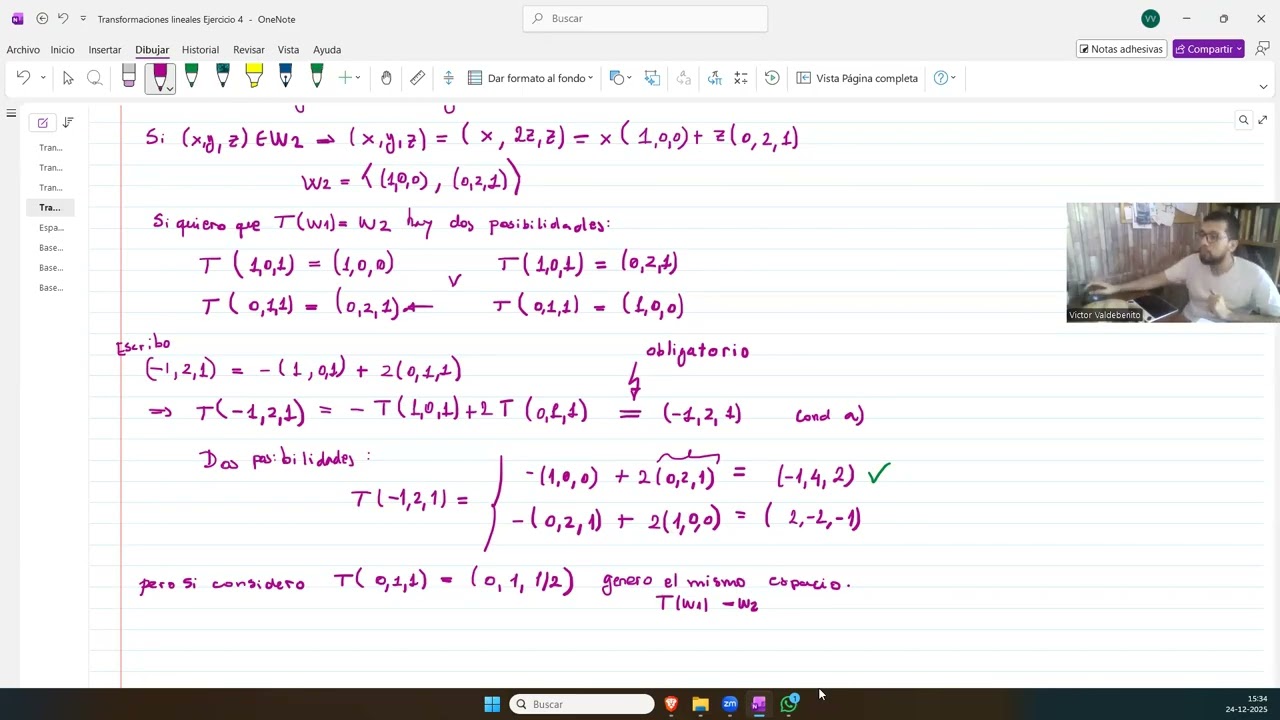 Transformaciones lineales Ejercicio 4 - OneNote
Buscar
VV
Archivo Inicio Insertar Dibujar Historial Revisar Vista Ayuda
Notas adhesivas
Compartir
Dar formato al fondo
Vista Página completa
Tran...
Tran...
Tran...
Tra...
Espa...
Base...
Base...
Base...
Si (x,y,z) ∈ W2 → (x,y,z) = (x, 2z, z) = x(1,0,0) + z(0,2,1)
W2 = ⟨(1,0,0), (0,2,1)⟩
Si quiero que T(W1) = W2 hay dos posibilidades:
T(1,0,1) = (1,0,0) T(1,0,1) = (0,2,1)
v
T(0,1,1) = (0,2,1) ← T(0,1,1) = (1,0,0)
Escribo
obligatorio
(-1,2,1) = -(1,0,1) + 2(0,1,1)
⇒ T(-1,2,1) = -T(1,0,1) + 2T(0,1,1) = (-1,2,1) Cond a)
Dos posibilidades:
-(1,0,0) + 2(0,2,1) = (-1,4,2) ✓
T(-1,2,1) =
-(0,2,1) + 2(1,0,0) = (2,-2,-1)
pero si considero T(0,1,1) = (0,1,1/2) genero el mismo espacio.
T(W1) = W2
Victor Valdebenito
Buscar
zm
1
15:34
24-12-2025